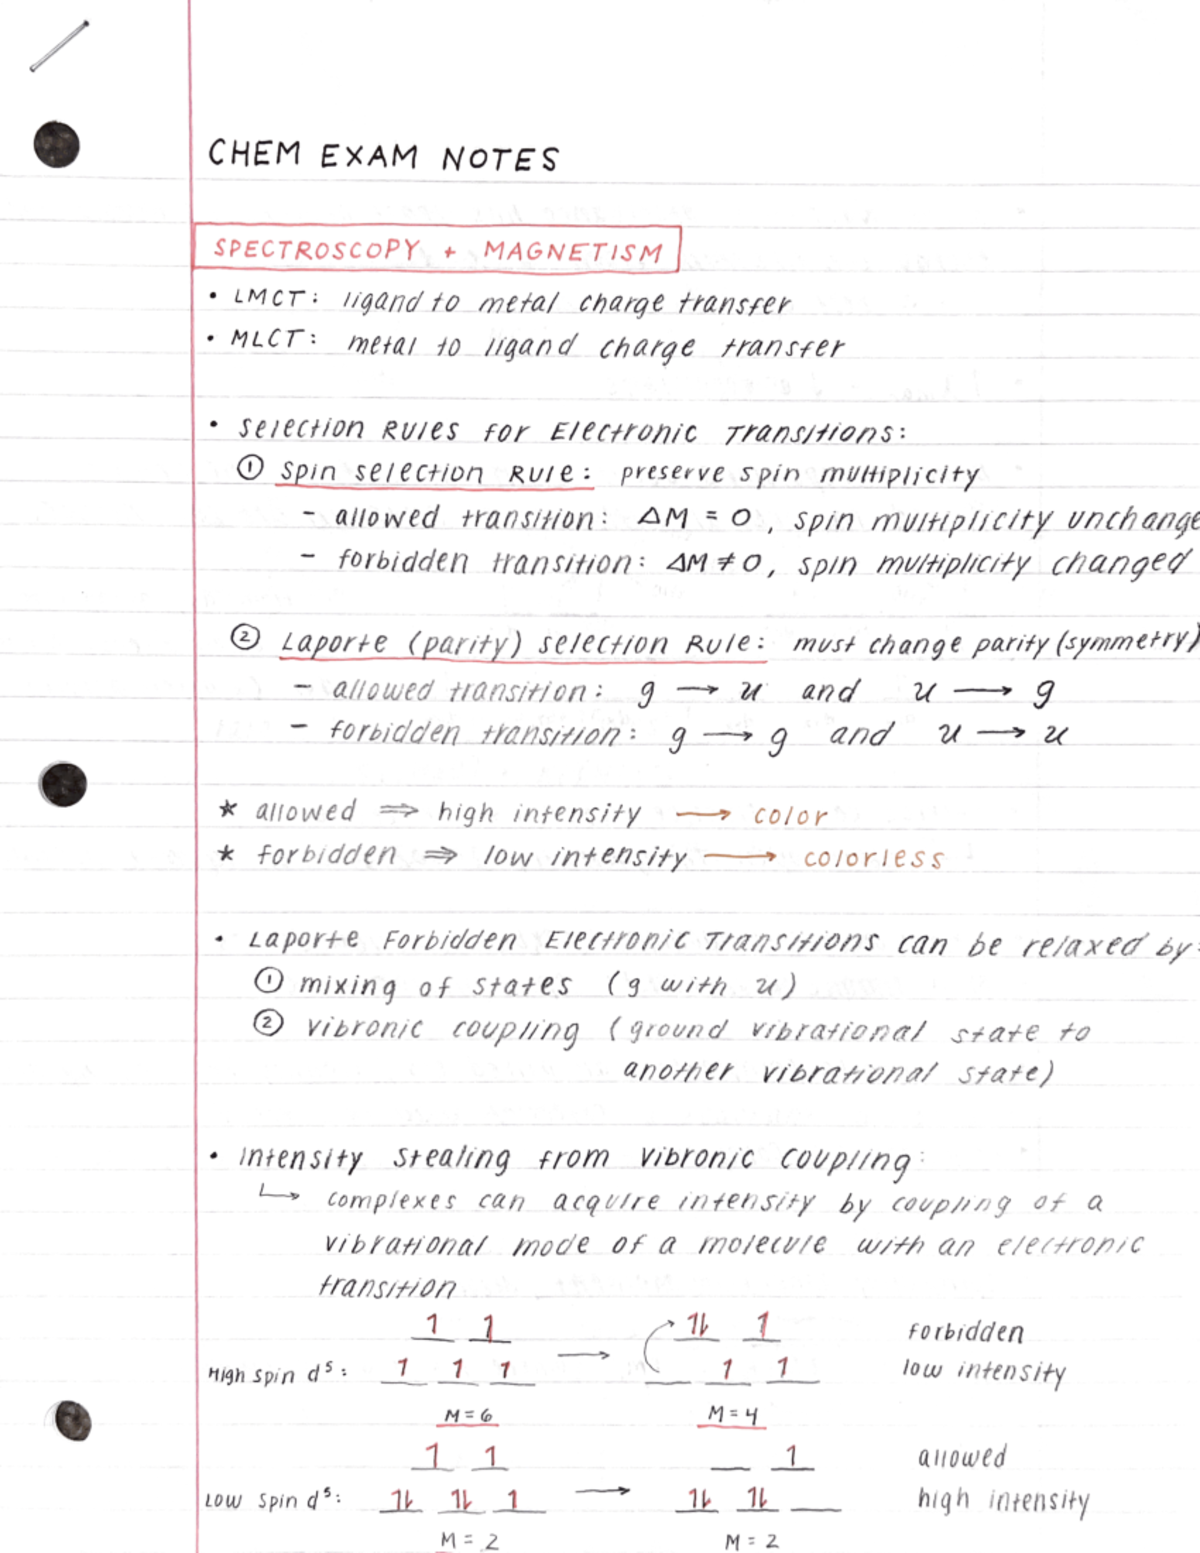 CHEM EXAM NOTES
SPECTROSCOPY + MAGNETISM
• LMCT: ligand to metal charge transfer
• MLCT: metal to ligand charge transfer
• Selection Rules for Electronic Transitions:
① Spin Selection Rule: preserve spin multiplicity
- allowed transition: ΔM = 0, spin multiplicity unchange
- forbidden transition: ΔM ≠ 0, spin multiplicity changed
② Laporte (parity) Selection Rule: must change parity (symmetry)
- allowed transition: g → u and u → g
- forbidden transition: g → g and u → u
* allowed ⇒ high intensity → color
* forbidden ⇒ low intensity → colorless
• Laporte Forbidden Electronic Transitions can be relaxed by:
① mixing of states (g with u)
② vibronic coupling (ground vibrational state to
another vibrational state)
• Intensity Stealing from Vibronic Coupling:
↳ complexes can acquire intensity by coupling of a
vibrational mode of a molecule with an electronic
transition
1 1 → 1⇂ 1 forbidden
High Spin d⁵: 1 1 1 1 1 low intensity
M = 6 M = 4
1 1 1 allowed
Low Spin d⁵: 1⇂ 1⇂ 1 → 1⇂ 1⇂ high intensity
M = 2 M = 2